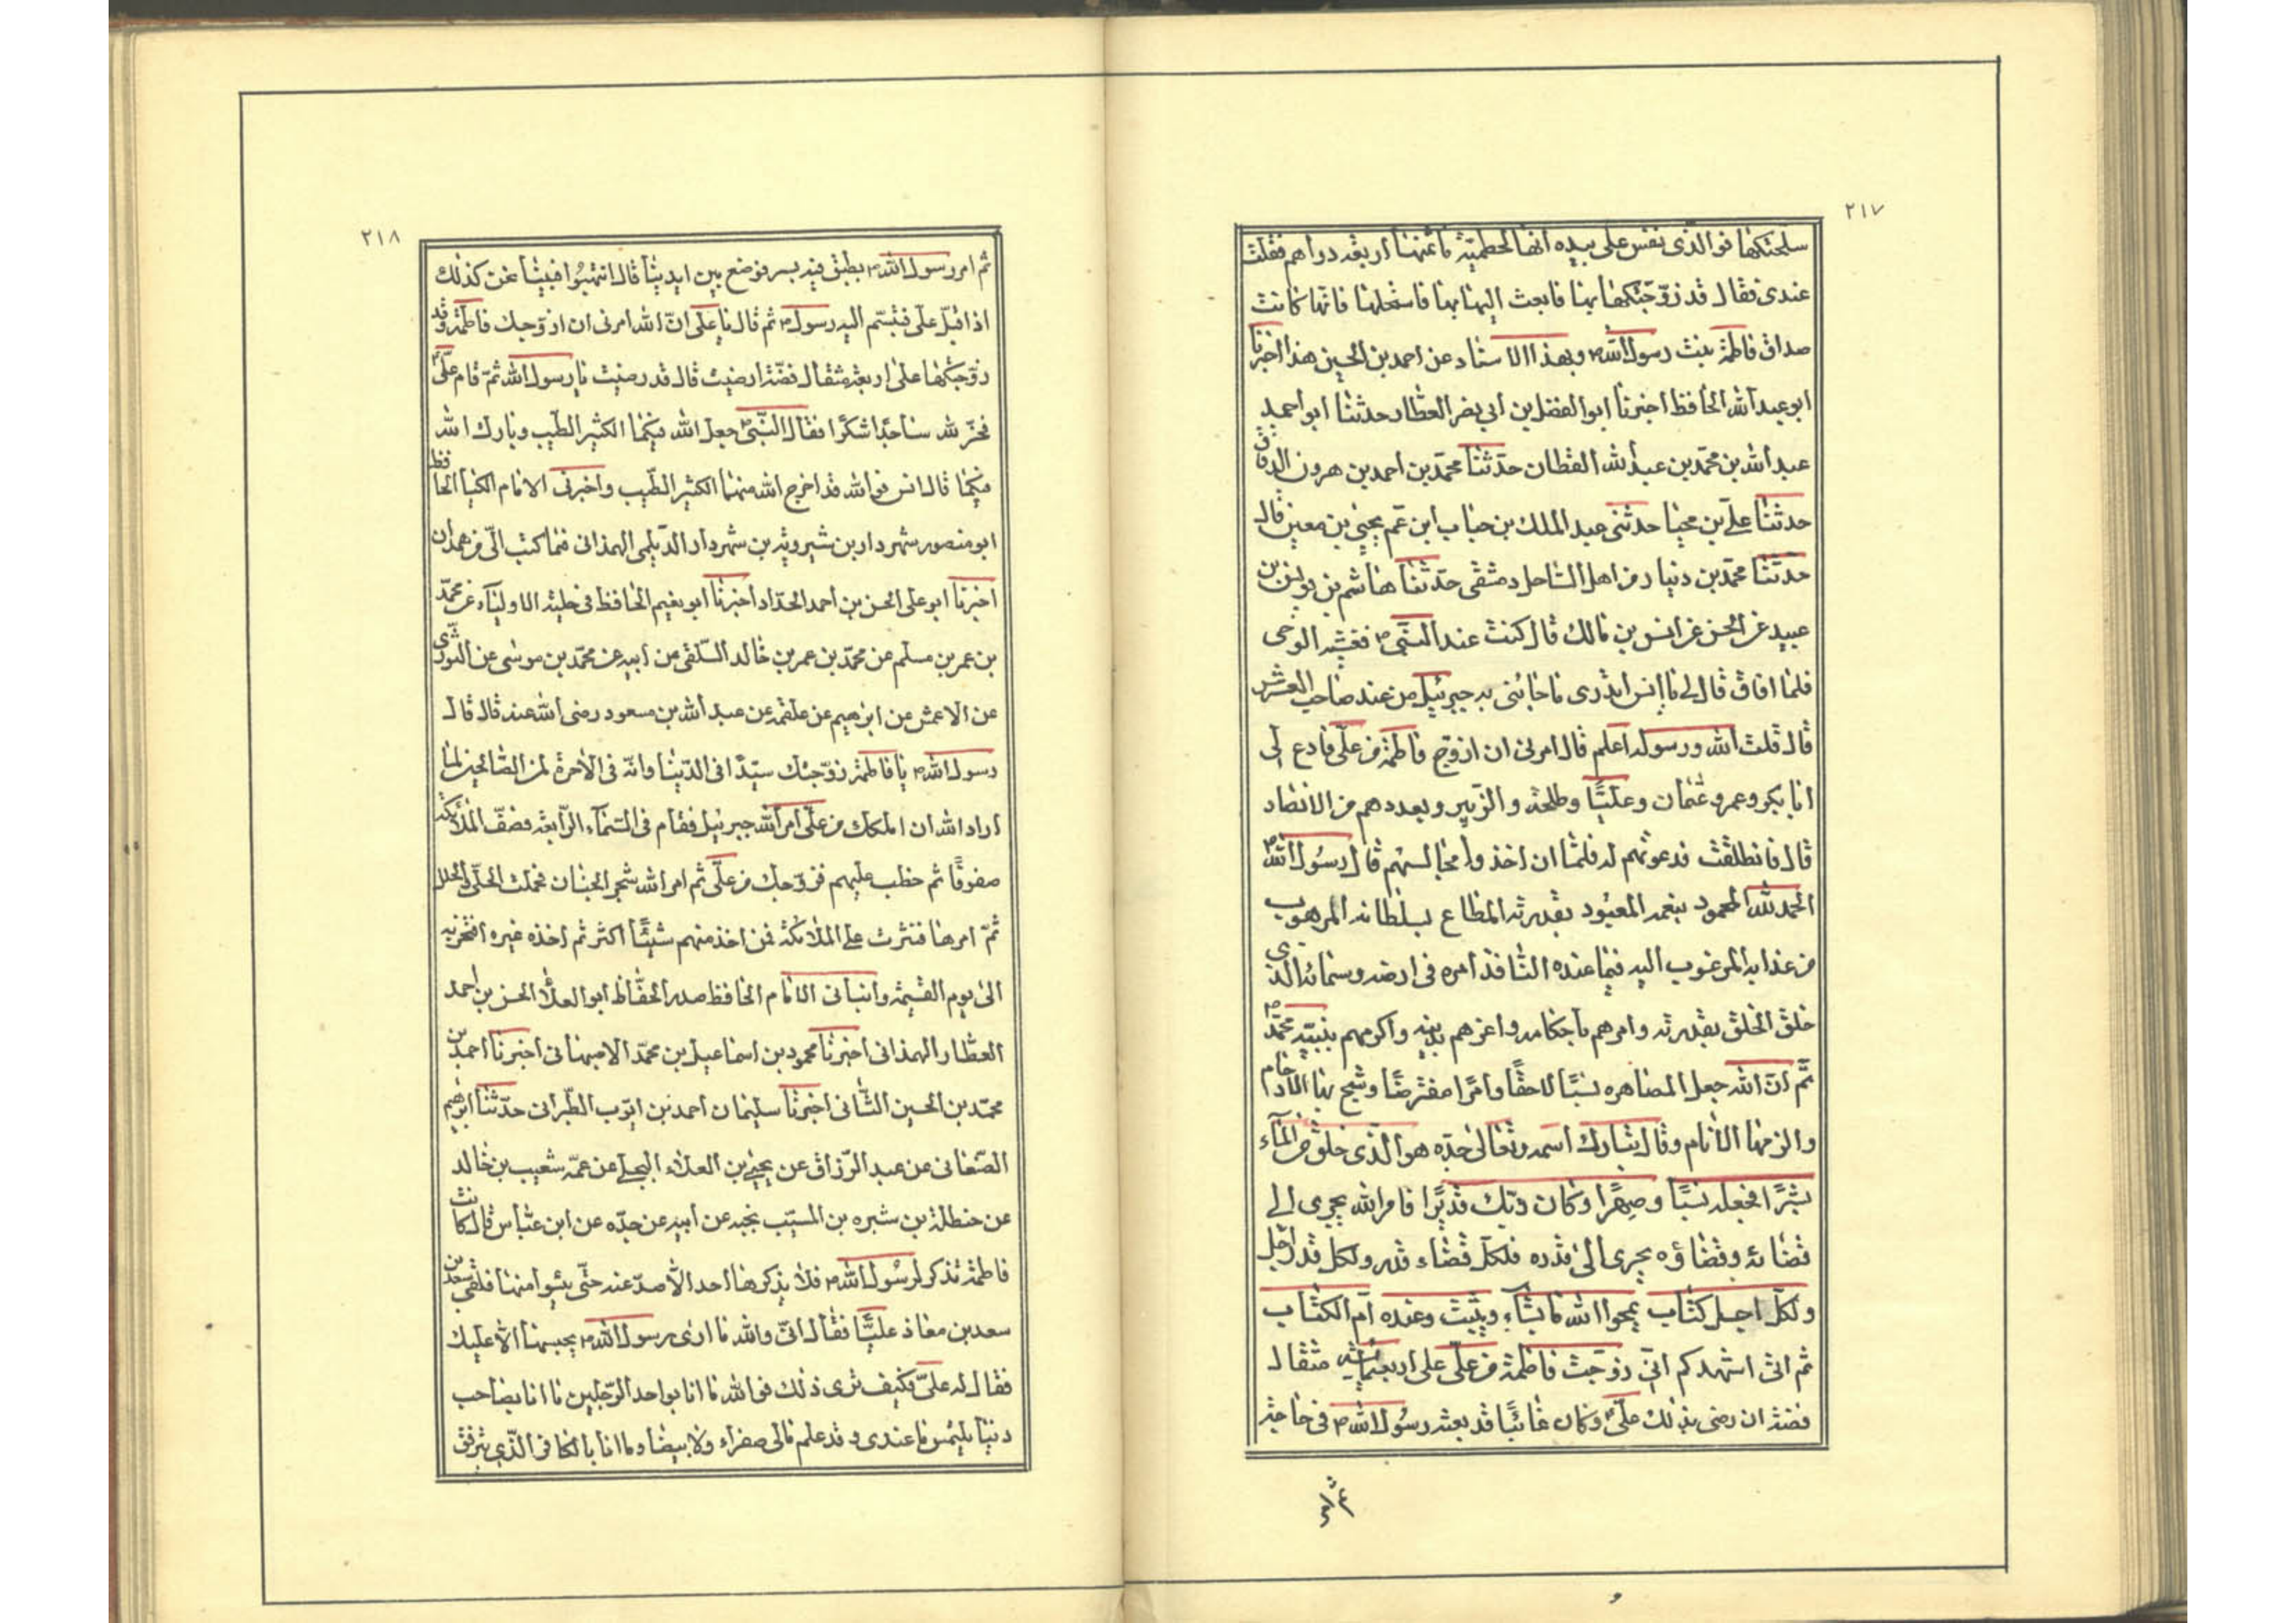 ٢١٧
سلحتكها فوالذى نفس على بيده انها لحطميّة ما ثمنها اربعة دراهم فقلت
عندى فقال قد زوّجتكها بها فابعث اليها بها فاستحلها فانها كانت
صداق فاطمة بنت رسول الله ص وبهذا الاسناد عن احمد بن الحسين هذا اخبرنا
ابو عبد الله الحافظ اخبرنا ابو الفضل بن ابى نصر العطار حدثنا ابو احمد
عبد الله بن محمّد بن عبد الله القطان حدّثنا محمّد بن احمد بن هرون الدقاق
حدثنا على بن محيا حدثنى عبد الملك بن حباب ابن عم يحيى بن معين قال
حدّثنا محمّد بن دينار من اهل الساحل دمشقى حدّثنا هاشم بن يونس بن
عبيد عن الحسن عن انس بن مالك قال كنت عند النبّى ص فغشيه الوحى
فلما افاق قال لى يا انس اتدرى ما جائنى به جبرئيل من عند صاحب العرش
قال قلت الله ورسوله اعلم قال امرنى ان ازوّج فاطمة من علّى فادع لى
ابا بكر وعمر وعثمان وعليّا وطلحة والزّبير وبعددهم من الانصار
قال فانطلقت فدعوتهم له فلمّا ان اخذوا مجالسهم قال رسول الله ص
الحمد لله المحمود بنعمه المعبود بقدرته المطاع بسلطانه المرهوب
من عذابه المرغوب اليه فيما عنده النافذ امره فى ارضه وسمائه الذى
خلق الخلق بقدرته وامرهم باحكامه واعزهم بدينه واكرمهم بنبيّه محمّد ص
ثّم انّ الله جعل المصاهره نسبًا لاحقًا وامرًا مفترضًا وشج بها الارحام
والزمها الانام وقال تبارك اسمه وتعالى جدّه هو الّذى خلق من الماء
بشرًا فجعله نسبًا وصهرًا وكان ربّك قديرًا فامر الله يجرى الى
قضائه وقضاؤه يجرى الى قدره فلكلّ قضاء قدر ولكل قدر اجل
ولكلّ اجل كتاب يمحوا الله ما يشاء ويثبت وعنده امّ الكتاب
ثم انى اشهدكم انّى زوّجت فاطمة من علّى على اربعمائة مثقال
فضة ان رضى بذلك علّى وكان غائبًا قد بعثه رسول الله ص فى حاجة
٢١٨
ثم امر رسول الله ص بطبق فيه بسر فوضع بين ايدينا قال انتهبوا فبينا نحن كذلك
اذ اقبل على فتبسّم اليه رسول ص ثم قال يا على انّ الله امرنى ان ازوّجك فاطمة وقد
زوّجتكها على اربعة مثقال فضّة ارضيت قال قد رضيت يا رسول الله ثمّ قام علّى
فخرّ لله ساجدًا شكرًا فقال النّبى جعل الله فيكما الكثير الطّيب وبارك الله
فيكما قال انس فوالله قد اخرج الله منهما الكثير الطّيب واخبرنى الامام الكيا الحافظ
ابو منصور شهردار بن شيرويه بن شهردار الدّيلمى الهمذانى فيما كتب الّى من همدان
اخبرنا ابو على الحسن بن احمد الحدّاد اخبرنا ابو نعيم الحافظ فى حلية الاولياء عن محمّد
بن عمر بن مسلم عن محمّد بن عمر بن خالد السّلفى عن ابيه عن محمّد بن موسى عن الثورى
عن الاعمش عن ابرهيم عن علقمة عن عبد الله بن مسعود رضى الله عنه قال قال
رسول الله ص يا فاطمة زوّجتك سيّدًا فى الدّنيا وانّه فى الآخرة لمن الصّالحين لما
اراد الله ان املكك من علّى امر الله جبرئيل فقام فى السّماء الرّابعة فصفّ الملائكة
صفوفًا ثم خطب عليهم فزوّجك من علّى ثم امر الله شجر الجنان فحملت الحلّى والحلل
ثمّ امرها فنثرت على الملائكة فمن اخذ منهم شيئًا اكثر ثم اخذه غيره افتخر به
الى يوم القيمة وانبانى الامام الحافظ صدر الحفّاظ ابو العلا الحسن بن احمد
العطّار الهمذانى اخبرنا محمود بن اسماعيل بن محمّد الاصبهانى اخبرنا احمد بن
محمّد بن الحسين الثّانى اخبرنا سليمان احمد بن ايّوب الطّبرانى حدّثنا ابرهيم
الصّغانى عن عبد الرّزاق عن يحيى بن العلاء البجلى عن عمّه شعيب بن خالد
عن حنظلة بن شبره بن المسيّب نجبه عن ابيه عن جدّه عن ابن عبّاس قال كانت
فاطمة تذكر لرسول الله ص فلا يذكرها احد الّا صدّ عنه حتّى يئسوا منها فلقى سعد بن
سعد بن معاذ عليّا فقال انّى والله ما ارى رسول الله ص يحبسها الّا عليك
فقال له علىّ فكيف ترى ذلك فوالله ما انا بواحد الرّجلين ما انا بصاحب
دنيا يلتمس ما عندى وقد علم مالى صفراء ولا بيضا وما انا بالكافر الّذى يترفق